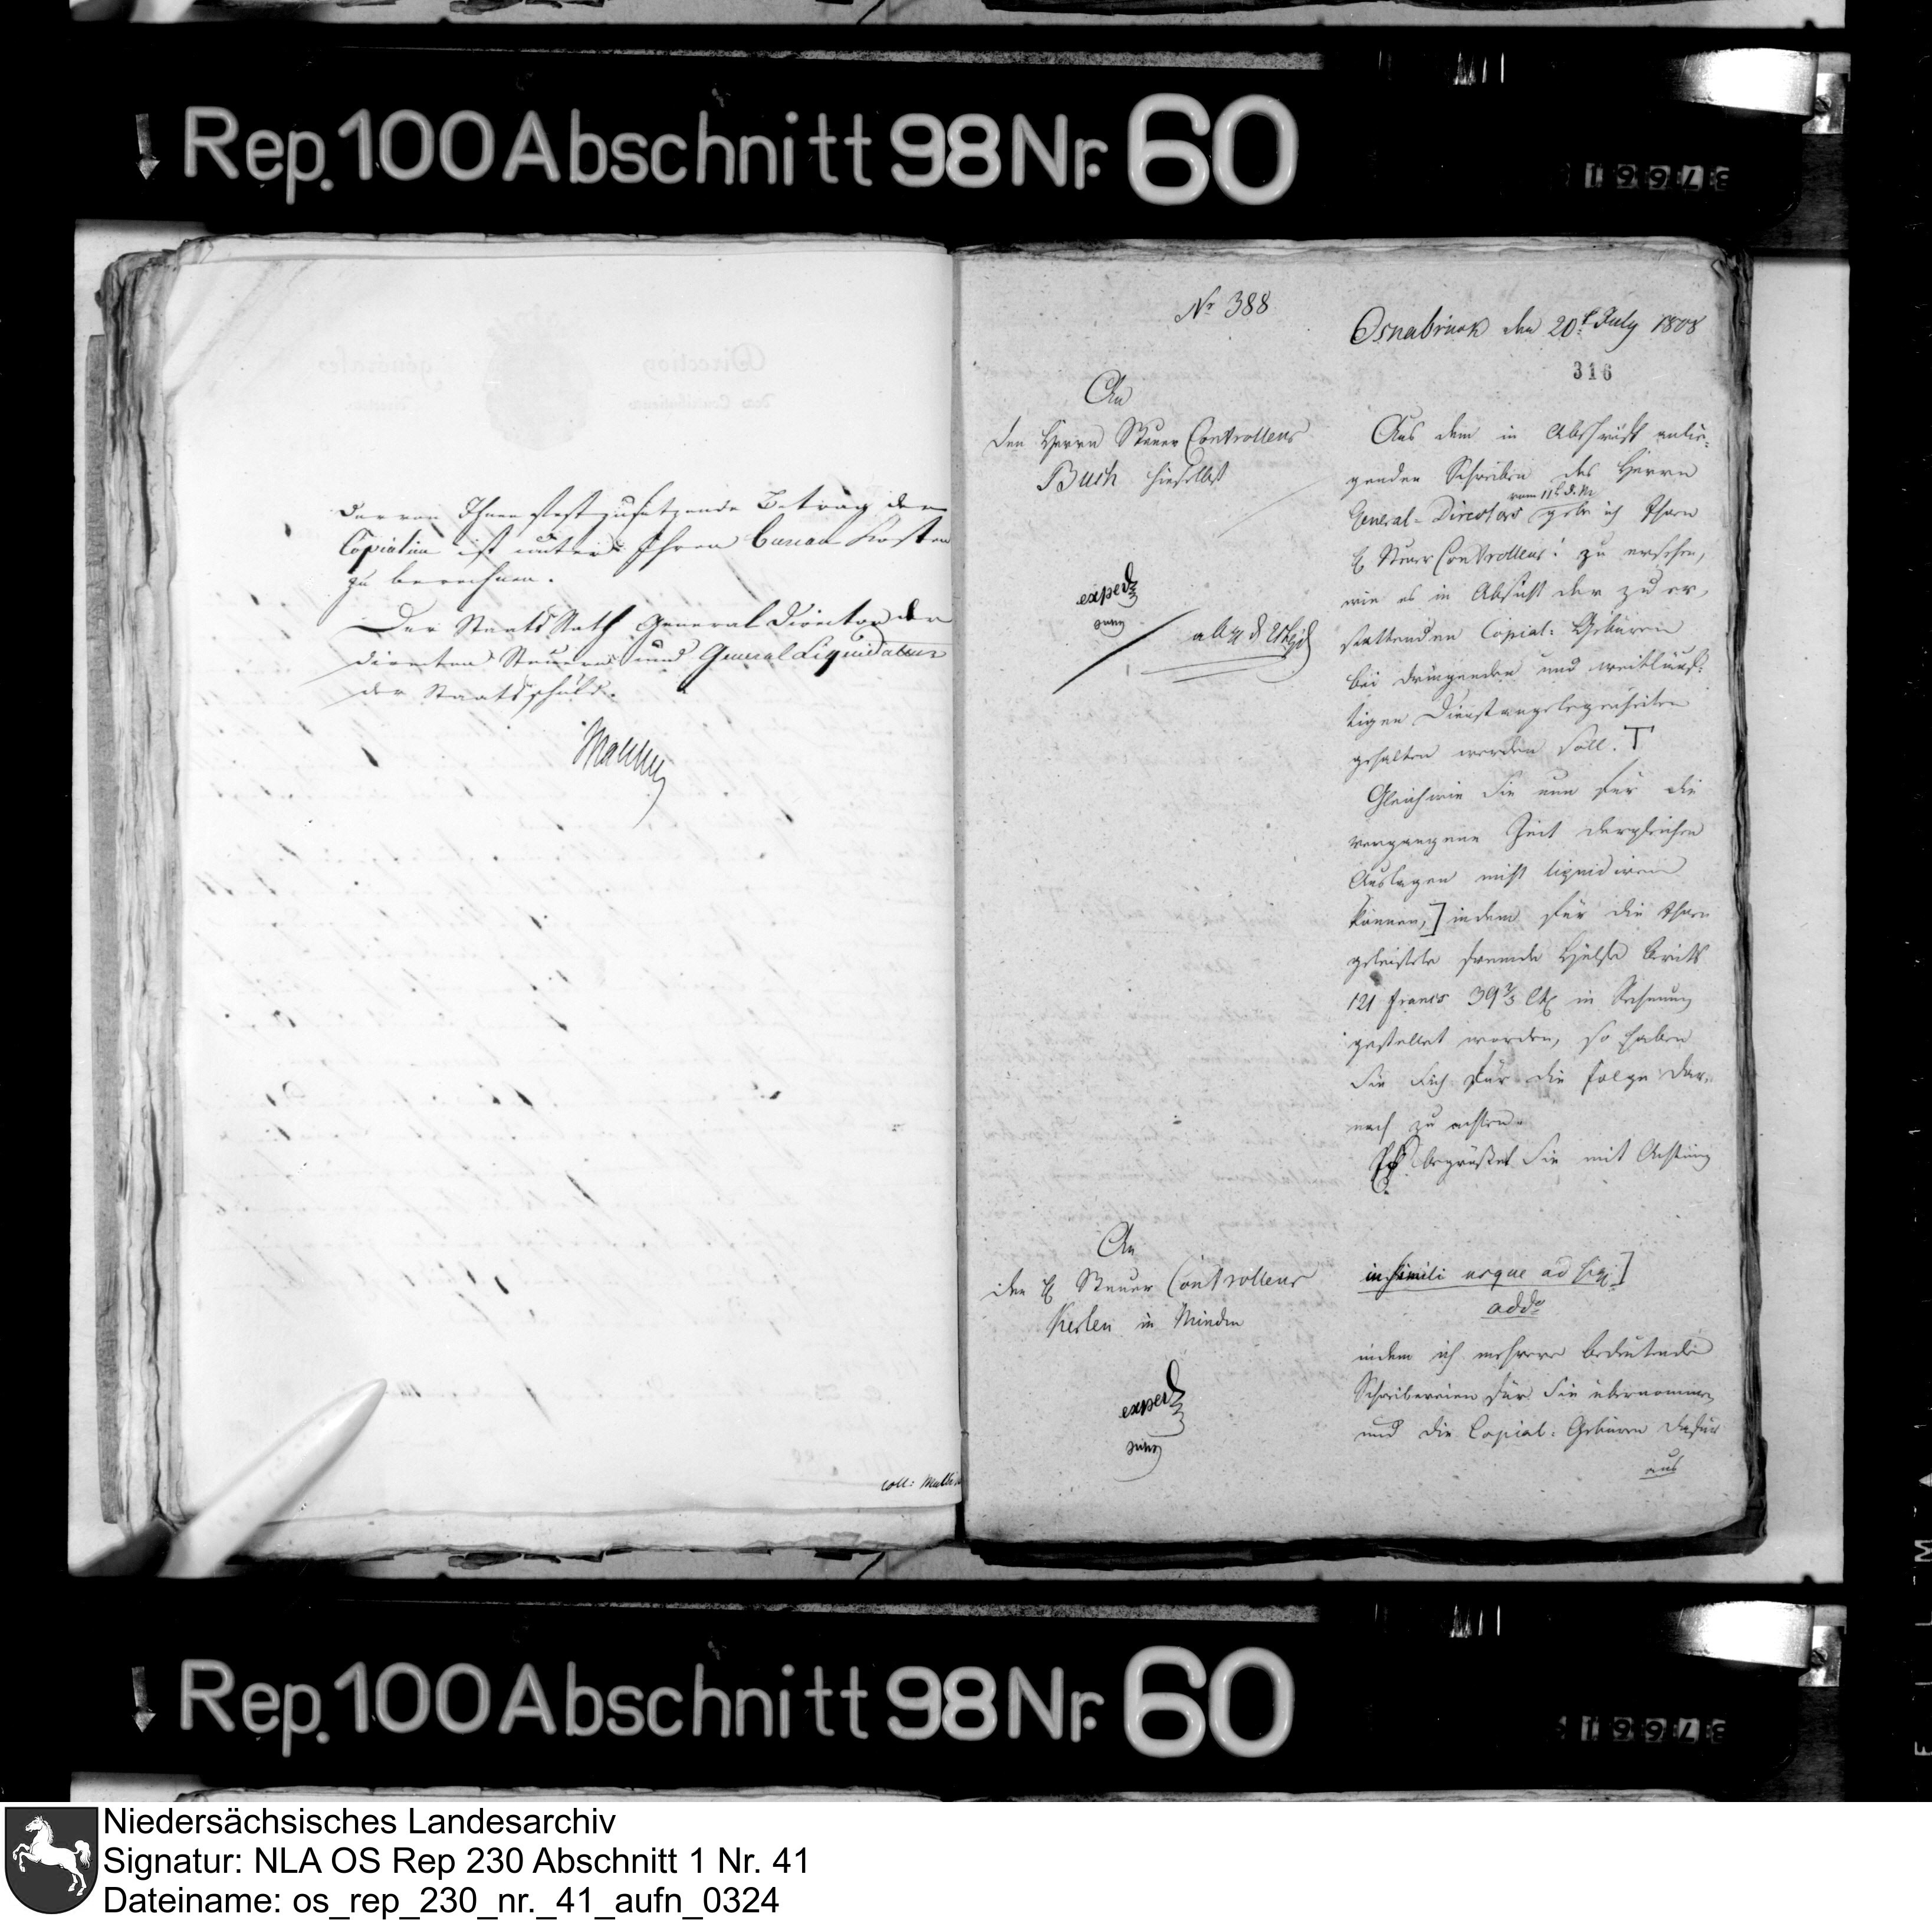 Rep. 100 Abschnitt 98 Nr. 60
der von Ihnen festzusetzende Betrag der
Copialien ist unter Ihren Bureau Kosten
zu berechnen.
Der Staats Rath General Director der
directen Steuern und General Liquidateur
der Staatsschuld.
Malchus
coll:
No 388
Osnabrück den 20t July 1808
316
An
den Herrn Steuer Controlleur
Buch hieselbst
exped
Aus dem in Abschrift anlie-
genden Schreiben des Herrn
vom 11t d. M.
General-Directors gebe ich Ihnen
H Steuer Controlleur! zu ersehen,
wie es in Absicht der zu er-
stattenden Copial-Gebüren
bei dringenden und weitläuf-
tigen Dienstangelegenheiten
gehalten werden soll.
Gleichwie Sie nun für die
vergangene Zeit dergleichen
Auslagen nicht liquidiren
können,] indem für die Ihnen
geleistete fremde Hülfe bereits
121 francs 39 2/3 Ct in Rechnung
gestellet worden, so haben
Sie Sich für die Folge dar-
nach zu achten.
Ich begrüße Sie mit Achtung
An
den H Steuer Controlleur
Kerlen in Minden
exped
in simili usque ad sig ]
add
indem ich mehrere bedeutende
Schreibereien für Sie übernommen,
und die Copial-Gebüren dafür
aus
Rep. 100 Abschnitt 98 Nr. 60
Niedersächsisches Landesarchiv
Signatur: NLA OS Rep 230 Abschnitt 1 Nr. 41
Dateiname: os_rep_230_nr._41_aufn_0324